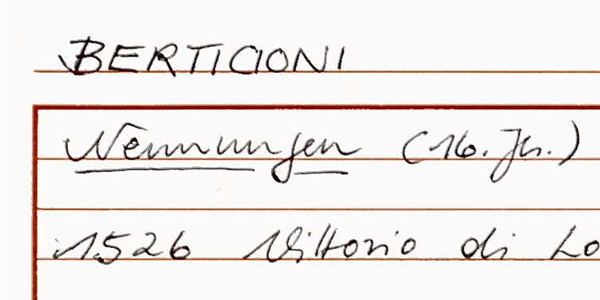 BERTICIONI
Nennungen (16. Jh.)
1526 Vittorio di Lo